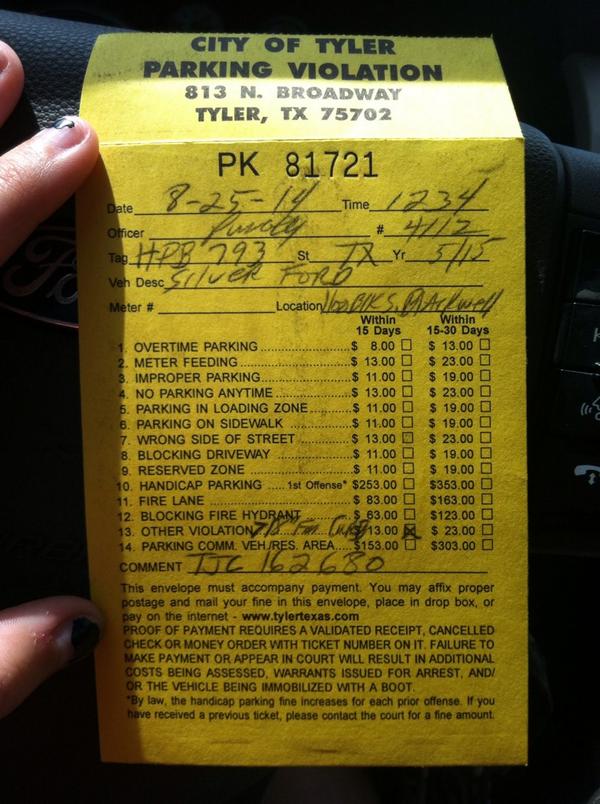 CITY OF TYLER
PARKING VIOLATION
813 N. BROADWAY
TYLER, TX 75702
PK 81721
Date 8-25-14 Time 1234
Officer Purdy # 4112
Tag HPB 793 St TX Yr 5/15
Veh Desc SILVER FORD
Meter # Location 100 BLK S.
Within 15 Days Within 15-30 Days
1. OVERTIME PARKING $ 8.00 $ 13.00
2. METER FEEDING $ 13.00 $ 23.00
3. IMPROPER PARKING $ 11.00 $ 19.00
4. NO PARKING ANYTIME $ 13.00 $ 23.00
5. PARKING IN LOADING ZONE $ 11.00 $ 19.00
6. PARKING ON SIDEWALK $ 11.00 $ 19.00
7. WRONG SIDE OF STREET $ 13.00 $ 23.00
8. BLOCKING DRIVEWAY $ 11.00 $ 19.00
9. RESERVED ZONE $ 11.00 $ 19.00
10. HANDICAP PARKING 1st Offense* $253.00 $353.00
11. FIRE LANE $ 83.00 $163.00
12. BLOCKING FIRE HYDRANT $ 63.00 $123.00
13. OTHER VIOLATION >18" Fm Curb $13.00 $ 23.00
14. PARKING COMM. VEH/RES. AREA $153.00 $303.00
COMMENT TJC 162680
This envelope must accompany payment. You may affix proper
postage and mail your fine in this envelope, place in drop box, or
pay on the internet - www.tylertexas.com
PROOF OF PAYMENT REQUIRES A VALIDATED RECEIPT, CANCELLED
CHECK OR MONEY ORDER WITH TICKET NUMBER ON IT. FAILURE TO
MAKE PAYMENT OR APPEAR IN COURT WILL RESULT IN ADDITIONAL
COSTS BEING ASSESSED, WARRANTS ISSUED FOR ARREST, AND/
OR THE VEHICLE BEING IMMOBILIZED WITH A BOOT.
*By law, the handicap parking fine increases for each prior offense. If you
have received a previous ticket, please contact the court for a fine amount.